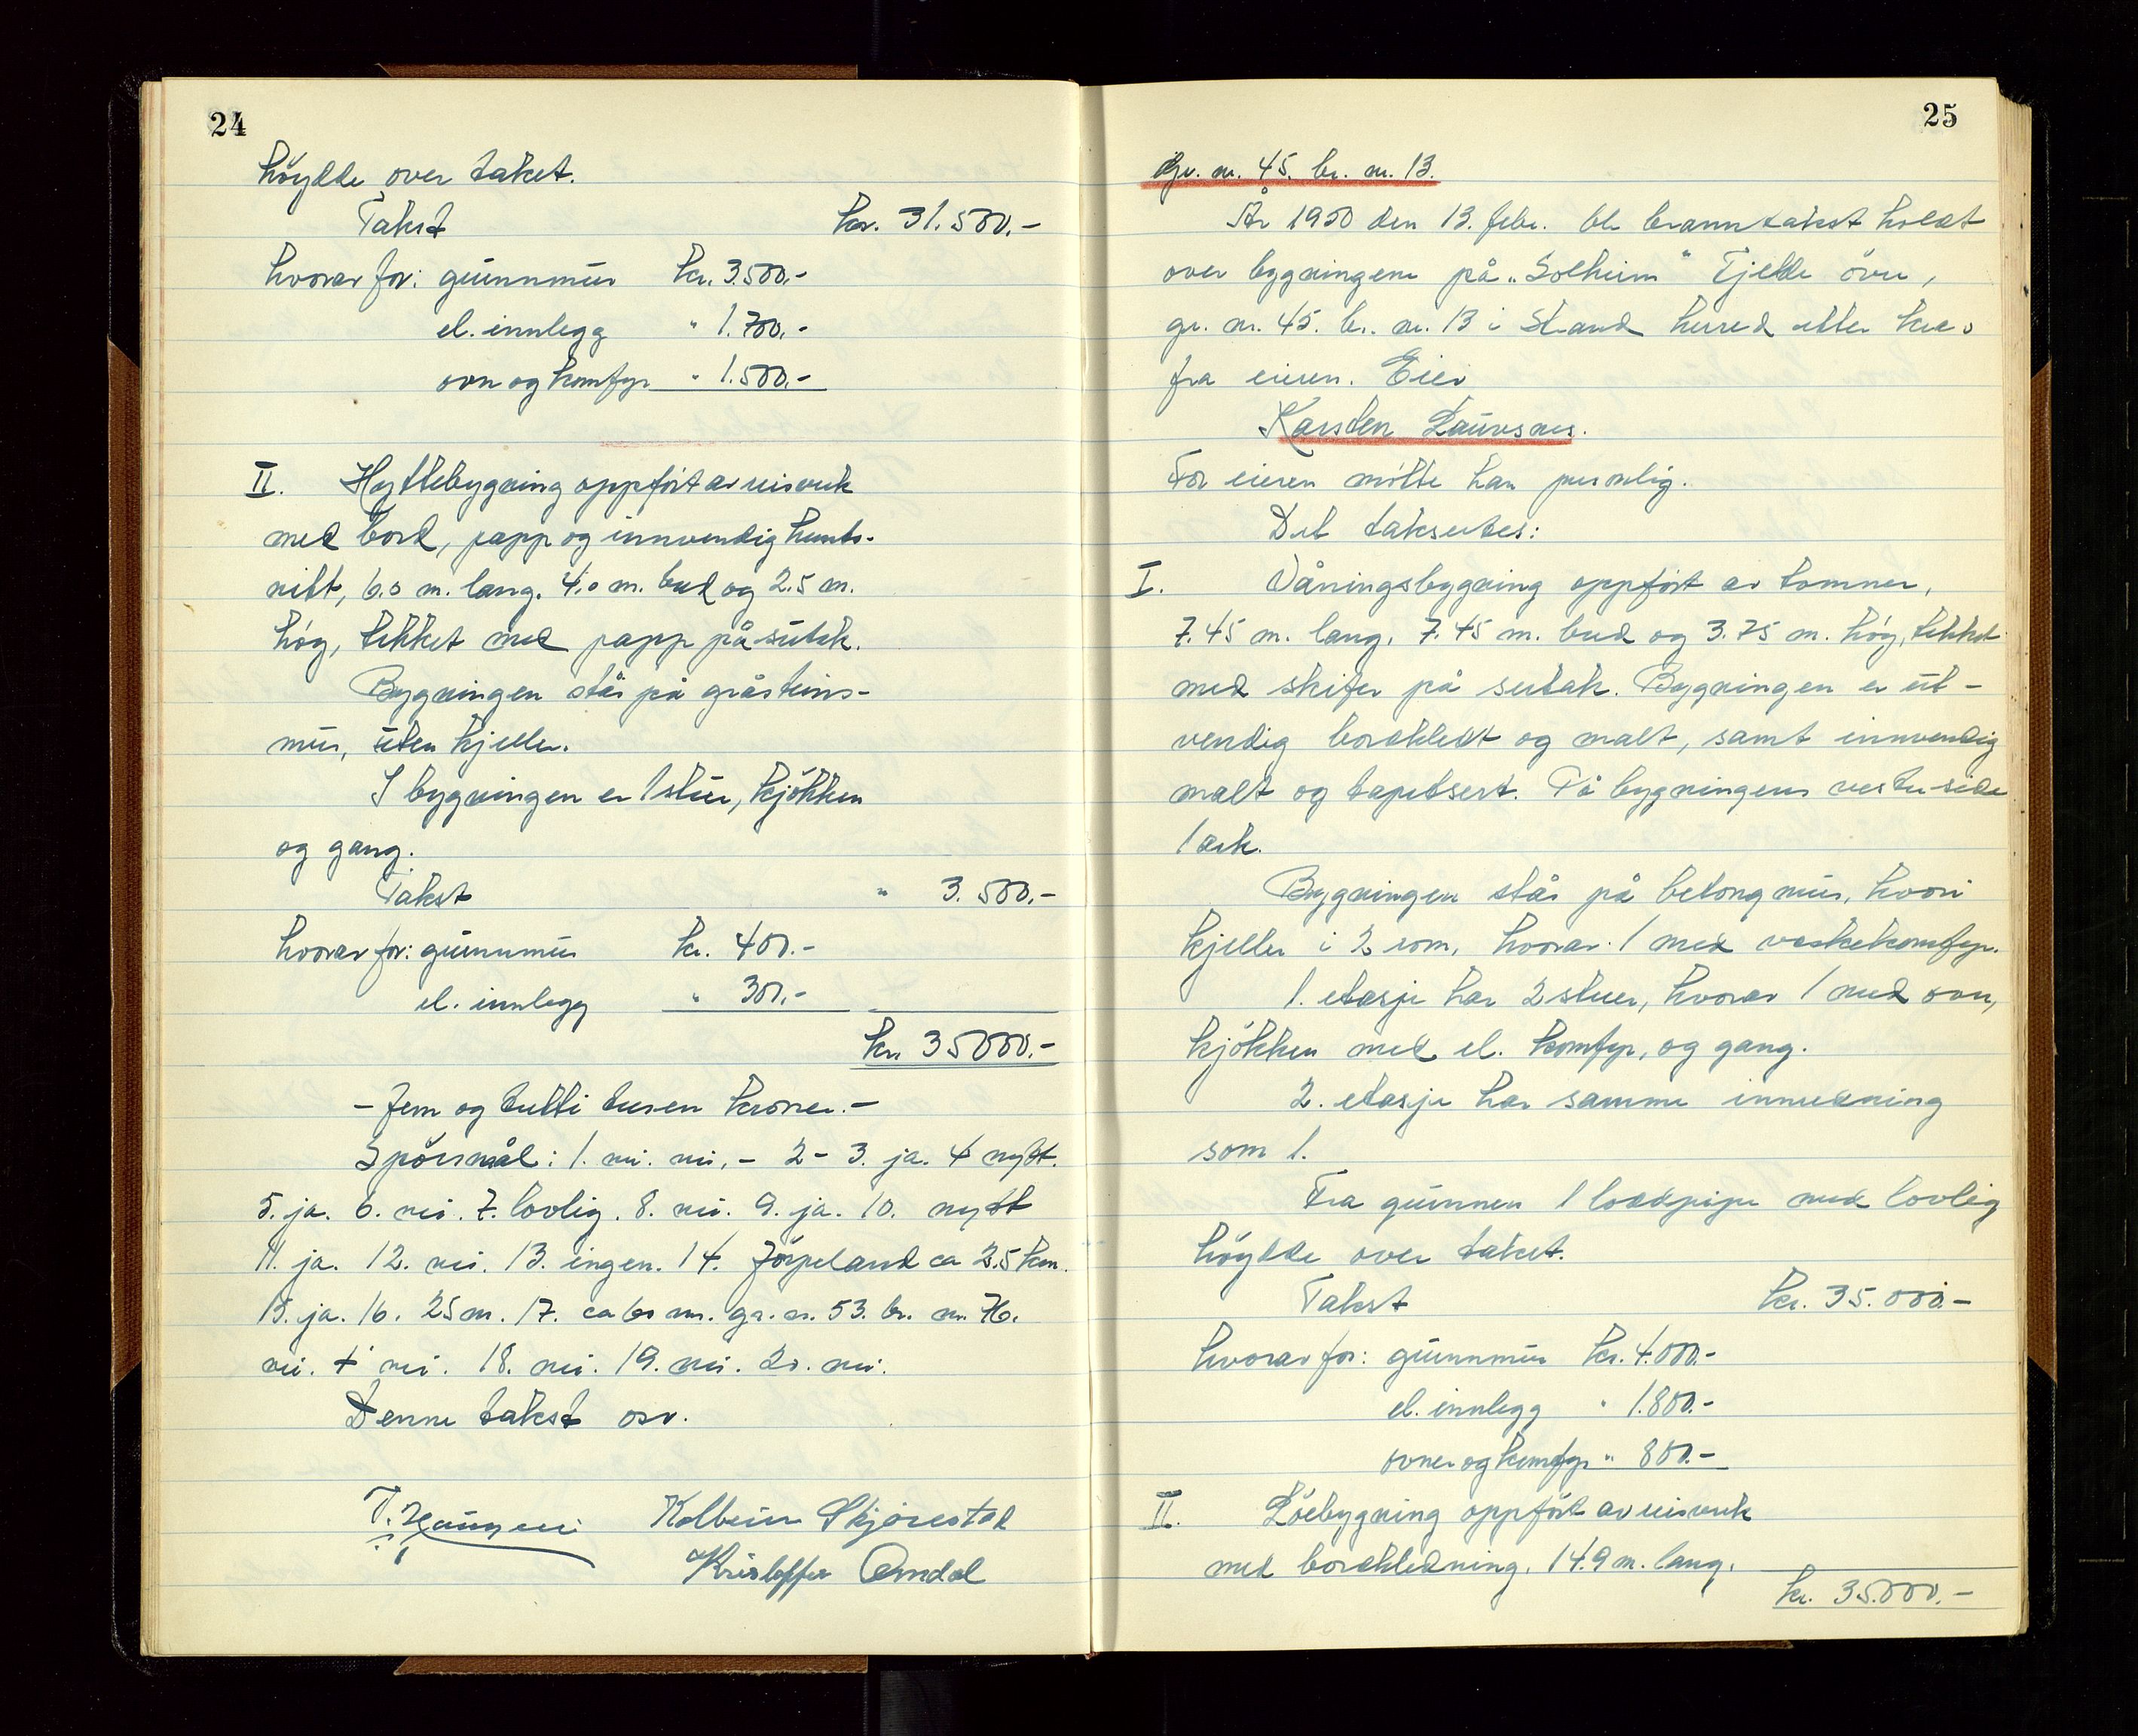 24
höydde over taket.
Takst kr. 31.500.-
hvorav for: grunnmur kr. 3.500,-
el. innlegg " 1.700,-
ovn og komfyr " 1.500,-
II. Hyttebygning oppført av reisverk
med bord, papp og innvendig hunto-
nitt, 6.0 m. lang. 4.0 m. bred og 2.5 m.
høg, tekket med papp på sutak.
Bygningen står på gråsteins-
mur, uten kjeller.
I bygningen er 1 stue, kjökken
og gang.
Takst " 3.500,-
hvorav for: grunnmur kr. 400.-
el. innlegg " 300,-
kr. 35000.-
- fem og tretti tusen kroner. -
Spörsmål: 1. nei. nei. - 2 - 3. ja. 4 nytt.
5. ja. 6. nei. 7. lovlig. 8. nei. 9. ja. 10. nytt
11. ja. 12. nei. 13. ingen. 14. Jörpeland ca 2.5 km.
15. ja. 16. 25 m. 17. ca 60 m. gr. nr. 53. br. nr. 76.
nei. + nei. 18. nei. 19. nei. 20. nei.
Denne takst osv.
T. Haugen Kolbein Skjørestad
Kristoffer Amdal
25
Gr. nr. 45. br. nr. 13.
År 1950 den 13. febr. ble branntakst holdt
over bygningene på "Solheim" Tjelde övre,
gr. nr. 45. br. nr. 13 i Strand herred etter krav
fra eieren. Eier
Karsten Laursnes.
For eieren møtte han personlig.
Det taksertes:
I. Våningsbygning oppført av tømmer,
7.45 m. lang, 7.45 m. bred og 3.75 m. høg, tekket
med skifer på sutak. Bygningen er ut-
vendig bordkledt og malt, samt innvendig
malt og tapetsert. På bygningens vestre side
1 ark.
Bygningen står på betongmur, hvori
kjeller i 2 rom, hvorav 1 med vaskekomfyr.
1. etasje har 2 stuer, hvorav 1 med ovn,
kjökken med el. komfyr, og gang.
2. etasje har samme innredning
som 1.
Fra grunnen 1 loddpipe med lovlig
höydde over taket.
Takst kr. 35.000.-
hvorav for: grunnmur kr. 4.000.-
el. innlegg " 1.800.-
ovner og komfyr " 800.-
II. Löebygning oppført av reisverk
med bordkledning. 14.9 m. lang,
kr. 35.000.-